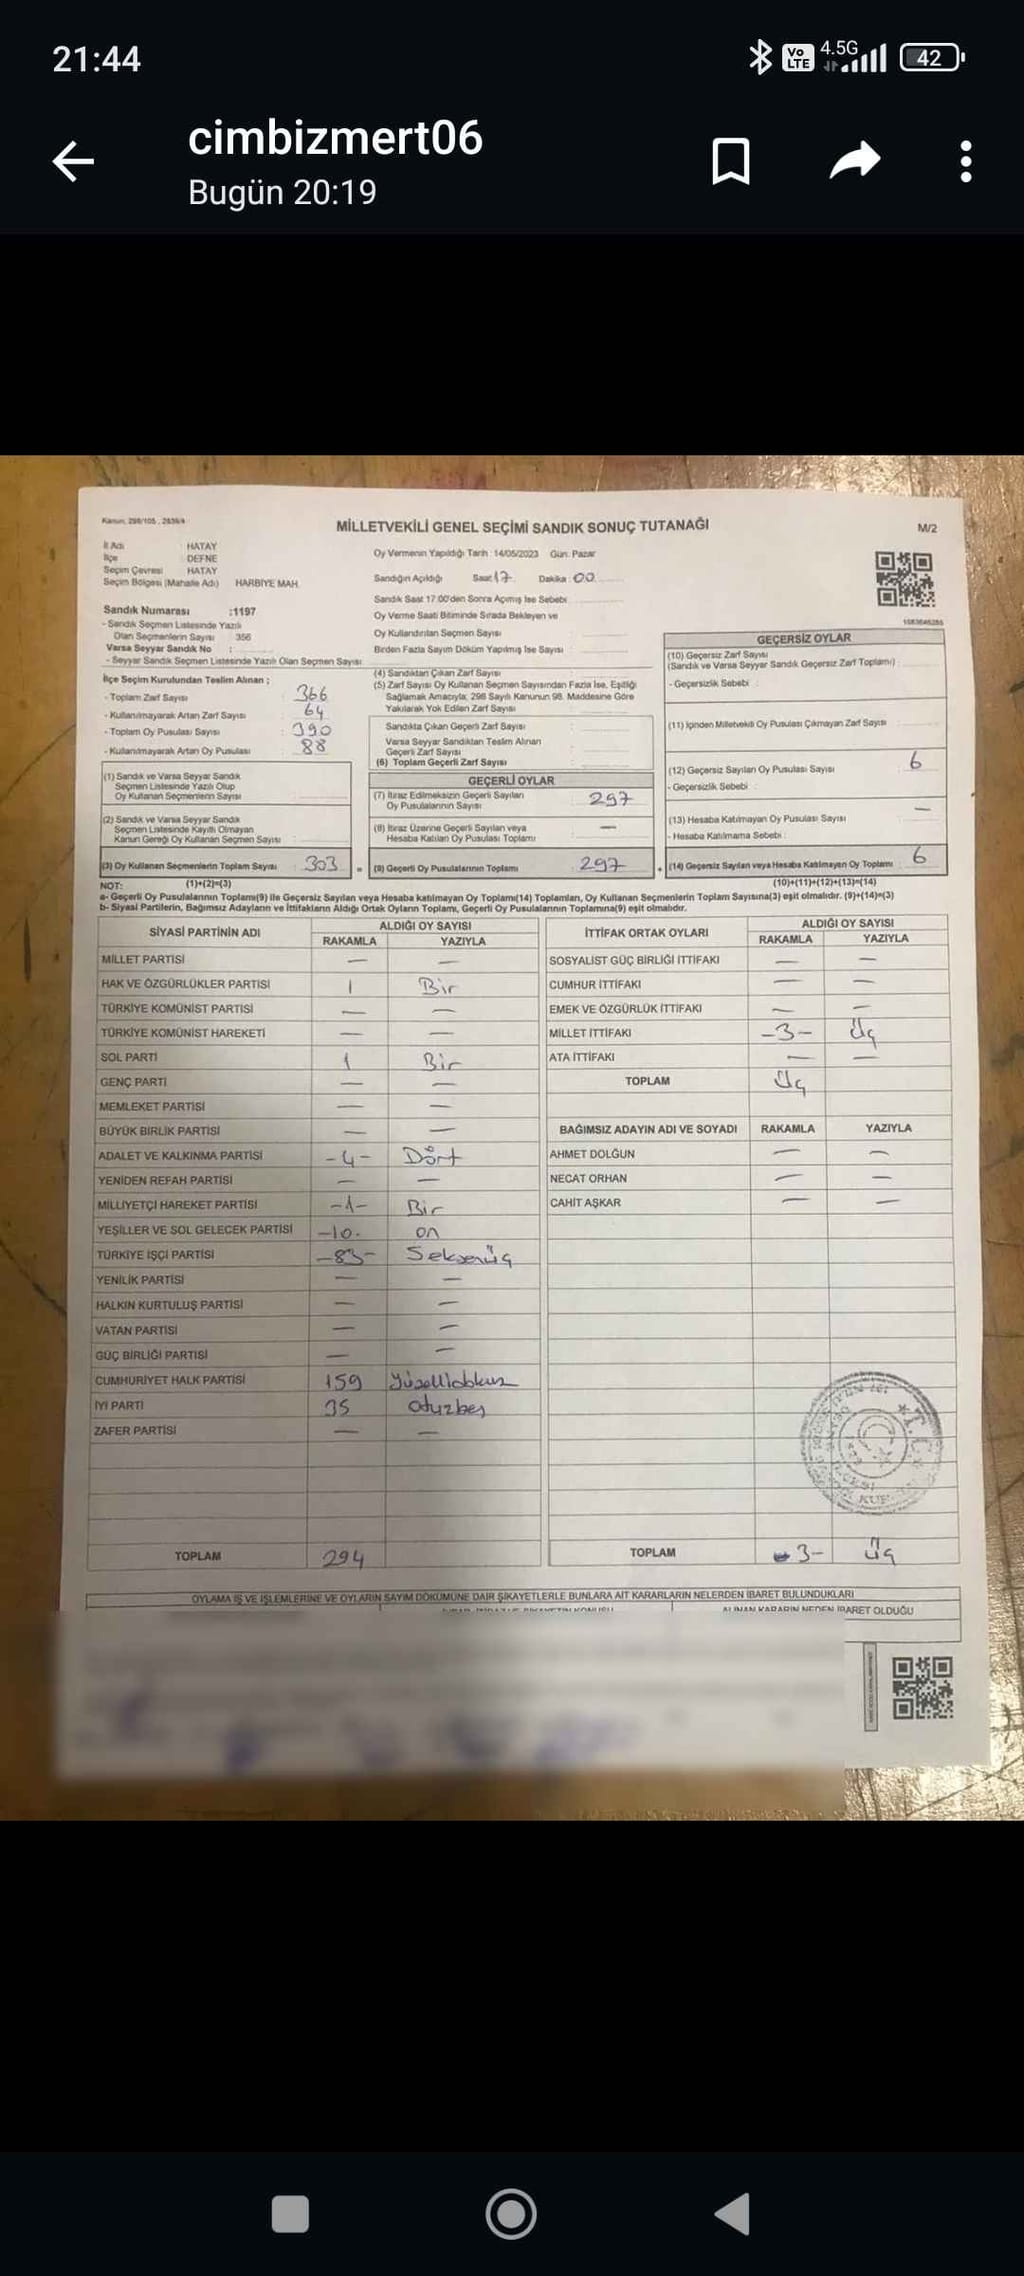 21:44
Vo LTE 4.5G 42
cimbizmert06
Bugün 20:19
Kanun: 298/105, 2839/4
MİLLETVEKİLİ GENEL SEÇİMİ SANDIK SONUÇ TUTANAĞI
M/2
İl Adı : HATAY
İlçe : DEFNE
Seçim Çevresi : HATAY
Seçim Bölgesi (Mahalle Adı) HARBİYE MAH.
Sandık Numarası :1197
- Sandık Seçmen Listesinde Yazılı
Olan Seçmenlerin Sayısı : 356
Varsa Seyyar Sandık No :
- Seyyar Sandık Seçmen Listesinde Yazılı Olan Seçmen Sayısı
İlçe Seçim Kurulundan Teslim Alınan ;
- Toplam Zarf Sayısı : 366
- Kullanılmayarak Artan Zarf Sayısı : 64
- Toplam Oy Pusulası Sayısı : 390
- Kullanılmayarak Artan Oy Pusulası : 88
(1) Sandık ve Varsa Seyyar Sandık
Seçmen Listesinde Yazılı Olup
Oy Kullanan Seçmenlerin Sayısı :
(2) Sandık ve Varsa Seyyar Sandık
Seçmen Listesinde Kayıtlı Olmayan
Kanun Gereği Oy Kullanan Seçmen Sayısı :
(3) Oy Kullanan Seçmenlerin Toplam Sayısı : 303
Oy Vermenin Yapıldığı Tarih : 14/05/2023 Gün: Pazar
Sandığın Açıldığı Saat 17 Dakika : 00
Sandık Saat 17:00'den Sonra Açımış İse Sebebi
Oy Verme Saati Bitiminde Sırada Bekleyen ve
Oy Kullandırılan Seçmen Sayısı
Birden Fazla Sayım Döküm Yapılmış İse Sayısı
(4) Sandıktan Çıkan Zarf Sayısı
(5) Zarf Sayısı Oy Kullanan Seçmen Sayısından Fazla İse, Eşitliği
Sağlamak Amacıyla, 298 Sayılı Kanunun 98. Maddesine Göre
Yakılarak Yok Edilen Zarf Sayısı
Sandıkta Çıkan Geçerli Zarf Sayısı
Varsa Seyyar Sandıktan Teslim Alınan
Geçerli Zarf Sayısı
(6) Toplam Geçerli Zarf Sayısı
GEÇERLİ OYLAR
(7) İtiraz Edilmeksizin Geçerli Sayılan
Oy Pusulalarının Sayısı : 297
(8) İtiraz Üzerine Geçerli Sayılan veya
Hesaba Katılan Oy Pusulası Toplamı : —
(9) Geçerli Oy Pusulalarının Toplamı : 297
1083646285
GEÇERSİZ OYLAR
(10) Geçersiz Zarf Sayısı
(Sandık ve Varsa Seyyar Sandık Geçersiz Zarf Toplamı) :
- Geçersizlik Sebebi :
(11) İçinden Milletvekili Oy Pusulası Çıkmayan Zarf Sayısı
(12) Geçersiz Sayılan Oy Pusulası Sayısı : 6
- Geçersizlik Sebebi :
(13) Hesaba Katılmayan Oy Pusulası Sayısı : —
- Hesaba Katılmama Sebebi :
(14) Geçersiz Sayılan veya Hesaba Katılmayan Oy Toplamı : 6
NOT: (1)+(2)=(3) (10)+(11)+(12)+(13)=(14)
a- Geçerli Oy Pusulalarının Toplamı(9) ile Geçersiz Sayılan veya Hesaba katılmayan Oy Toplamı(14) Toplamları, Oy Kullanan Seçmenlerin Toplam Sayısına(3) eşit olmalıdır. (9)+(14)=(3)
b- Siyasi Partilerin, Bağımsız Adayların ve İttifakların Aldığı Ortak Oyların Toplamı, Geçerli Oy Pusulalarının Toplamına(9) eşit olmalıdır.
SİYASİ PARTİNİN ADI ALDIĞI OY SAYISI
RAKAMLA YAZIYLA
MİLLET PARTİSİ — —
HAK VE ÖZGÜRLÜKLER PARTİSİ 1 Bir
TÜRKİYE KOMÜNİST PARTİSİ — —
TÜRKİYE KOMÜNİST HAREKETİ — —
SOL PARTİ 1 Bir
GENÇ PARTİ — —
MEMLEKET PARTİSİ — —
BÜYÜK BİRLİK PARTİSİ — —
ADALET VE KALKINMA PARTİSİ -4- Dört
YENİDEN REFAH PARTİSİ — —
MİLLİYETÇİ HAREKET PARTİSİ -1- Bir
YEŞİLLER VE SOL GELECEK PARTİSİ -10- on
TÜRKİYE İŞÇİ PARTİSİ -83- Seksenüç
YENİLİK PARTİSİ — —
HALKIN KURTULUŞ PARTİSİ — —
VATAN PARTİSİ — —
GÜÇ BİRLİĞİ PARTİSİ — —
CUMHURİYET HALK PARTİSİ 159 Yüzellidokuz
İYİ PARTİ 35 Otuzbeş
ZAFER PARTİSİ — —
TOPLAM 294
İTTİFAK ORTAK OYLARI ALDIĞI OY SAYISI
RAKAMLA YAZIYLA
SOSYALİST GÜÇ BİRLİĞİ İTTİFAKI — —
CUMHUR İTTİFAKI — —
EMEK VE ÖZGÜRLÜK İTTİFAKI — —
MİLLET İTTİFAKI -3- Üç
ATA İTTİFAKI — —
TOPLAM Üç
BAĞIMSIZ ADAYIN ADI VE SOYADI RAKAMLA YAZIYLA
AHMET DOLĞUN — —
NECAT ORHAN — —
CAHİT AŞKAR — —
T.C.
TOPLAM -3- Üç
OYLAMA İŞ VE İŞLEMLERİNE VE OYLARIN SAYIM DÖKÜMÜNE DAİR ŞİKAYETLERLE BUNLARA AİT KARARLARIN NELERDEN İBARET BULUNDUKLARI
ALINAN KARARIN NEDEN İBARET OLDUĞU